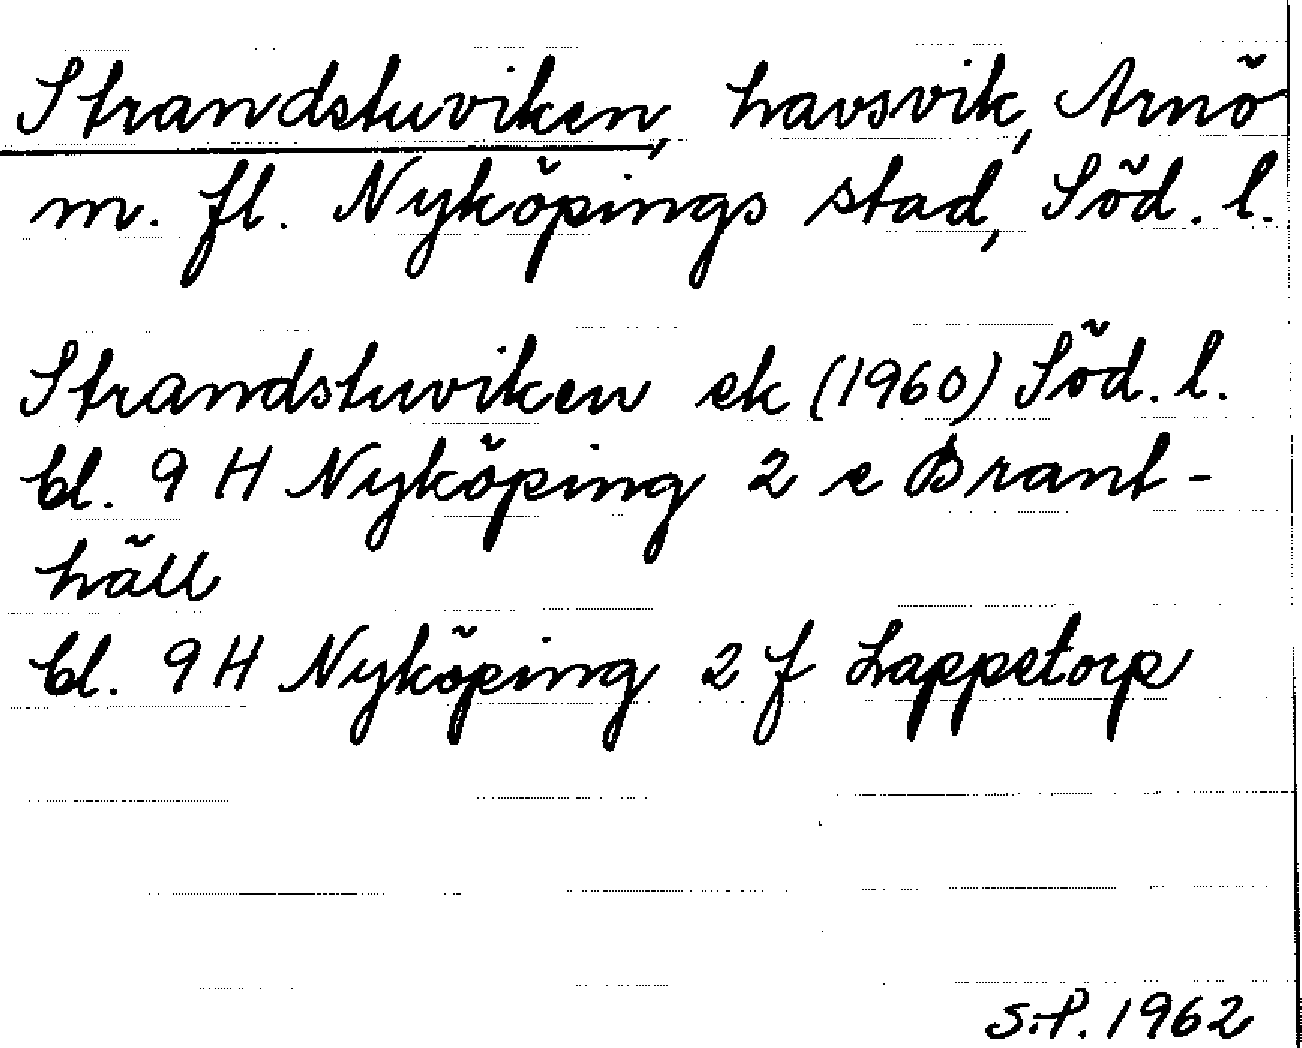 Strandstuviken, havsvik, Arnö
m. fl. Nyköpings stad, Söd. l.
Strandstuviken ek (1960) Söd. l.
bl. 9 H Nyköping 2 e Brant-
häll
bl. 9 H Nyköping 2 f Lappetorp
S.P. 1962